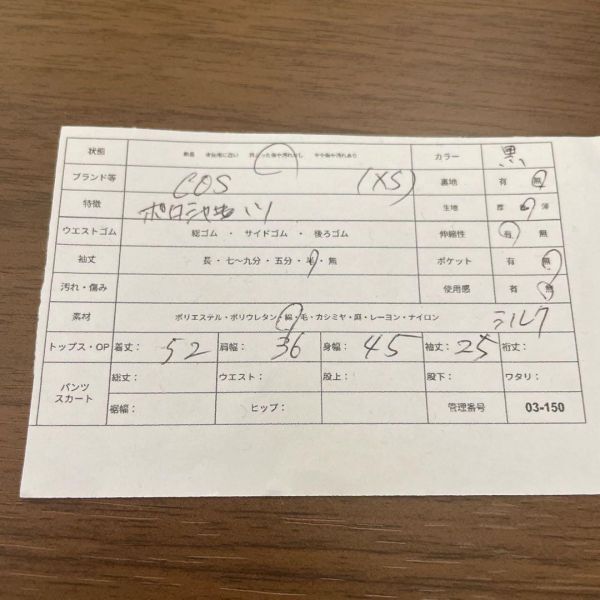 状態 新品 未使用に近い 目立った傷や汚れなし やや傷や汚れあり カラー 黒
ブランド等 COS (XS) 裏地 有 無
特徴 ポロシャツ 生地 厚 薄
ウエストゴム 総ゴム ・ サイドゴム ・ 後ろゴム 伸縮性 有 無
袖丈 長 ・ 七〜九分 ・ 五分 ・ 半 ・ 無 ポケット 有 無
汚れ・傷み 使用感 有 無
素材 ポリエステル・ポリウレタン・綿・毛・カシミヤ・麻・レーヨン・ナイロン シルク
トップス・OP 着丈: 52 肩幅: 36 身幅: 45 袖丈: 25 裄丈:
パンツ スカート 総丈: ウエスト: 股上: 股下: ワタリ:
裾幅: ヒップ: 管理番号 03-150